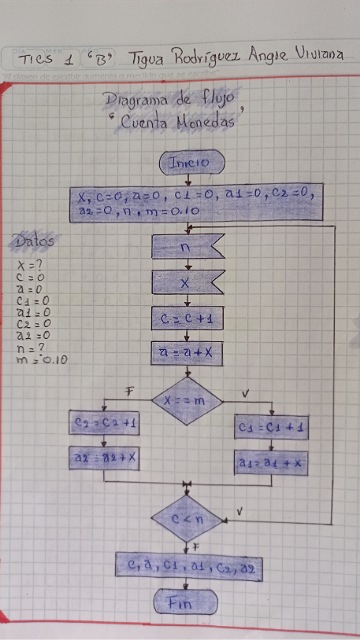 TICS 1 "B" Tigua Rodríguez Angie Viviana
Diagrama de flujo
"Cuenta Monedas"
Inicio
x, c=0, a=0, c1=0, a1=0, c2=0,
a2=0, n, m=0.10
Datos
x=?
c=0
a=0
c1=0
a1=0
c2=0
a2=0
n=?
m=0.10
n
x
c=c+1
a=a+x
x==m
F
V
c2=c2+1
c1=c1+1
a2=a2+x
a1=a1+x
c<n
V
F
c, a, c1, a1, c2, a2
Fin